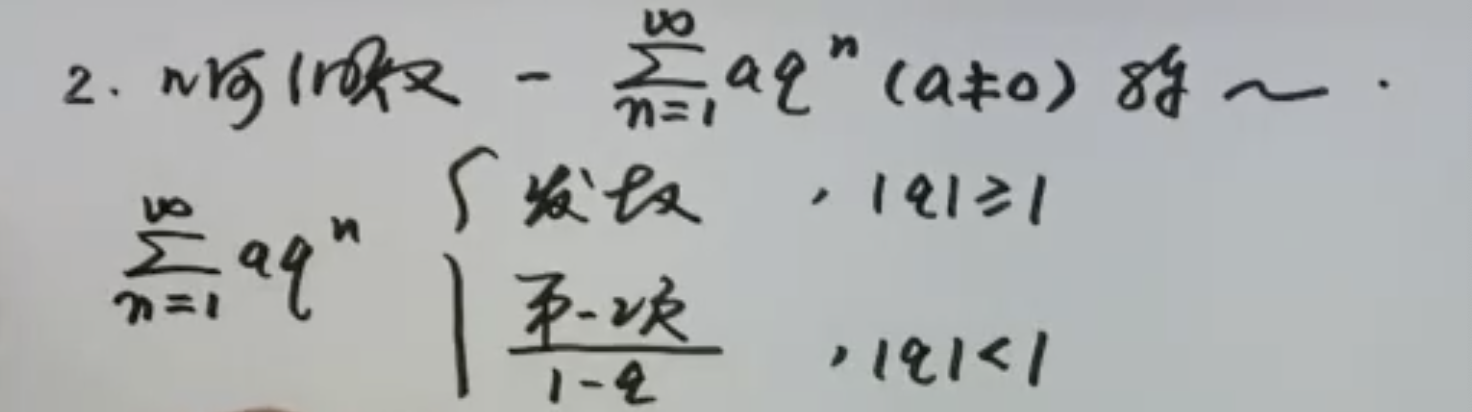 2. 几何级数 - $\sum_{n=1}^{\infty} aq^n (a \neq 0)$ 称 ~ .
$\sum_{n=1}^{\infty} aq^n \begin{cases} 发散, & |q| \geq 1 \\ \frac{第一项}{1-q}, & |q| < 1 \end{cases}$